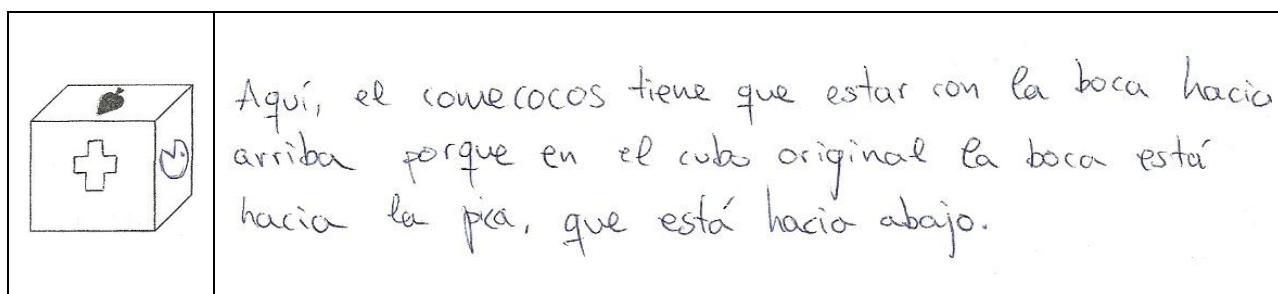 Aquí, el comecocos tiene que estar con la boca hacia
arriba porque en el cubo original la boca está
hacia la pica, que está hacia abajo.